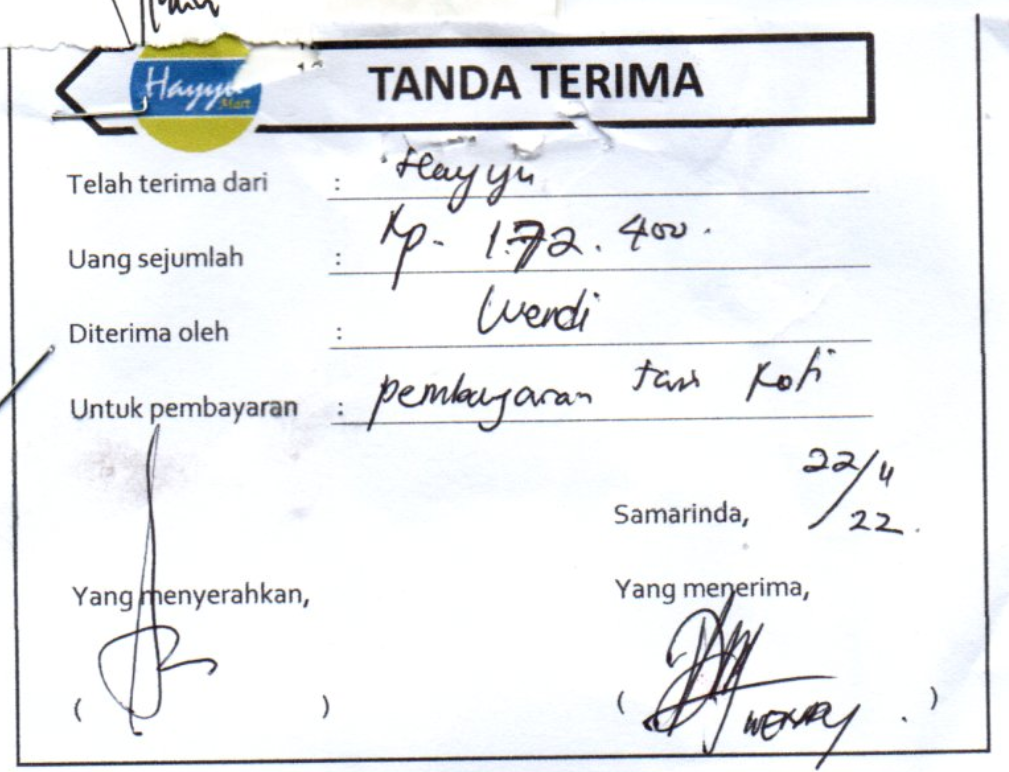 Hayyu
Mart
TANDA TERIMA
Telah terima dari : Hayyu
Uang sejumlah : Rp. 172.400.
Diterima oleh : Wendi
Untuk pembayaran : pembayaran roti
Samarinda, 22/4
22.
Yang menyerahkan, Yang menerima,
( ) ( WENDY . )